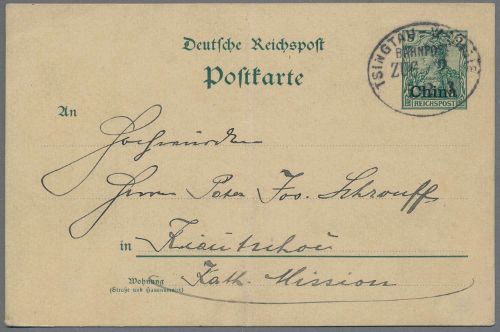 Deutsche Reichspost
Postkarte
TSINGTAU
BAHNPOST
ZUG 2
China
REICHSPOST
An
Hochwürden
Herrn Pater Jos. Schrouff
in Kiautschou
Kath. Mission
Wohnung
(Straße und Hausnummer)